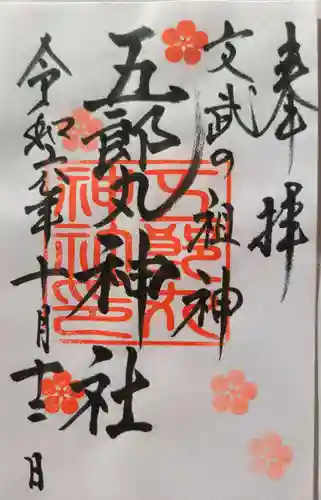 奉拝
文武の祖神
五郎丸神社
令和六年十月十二日
五郎丸
神社
神印